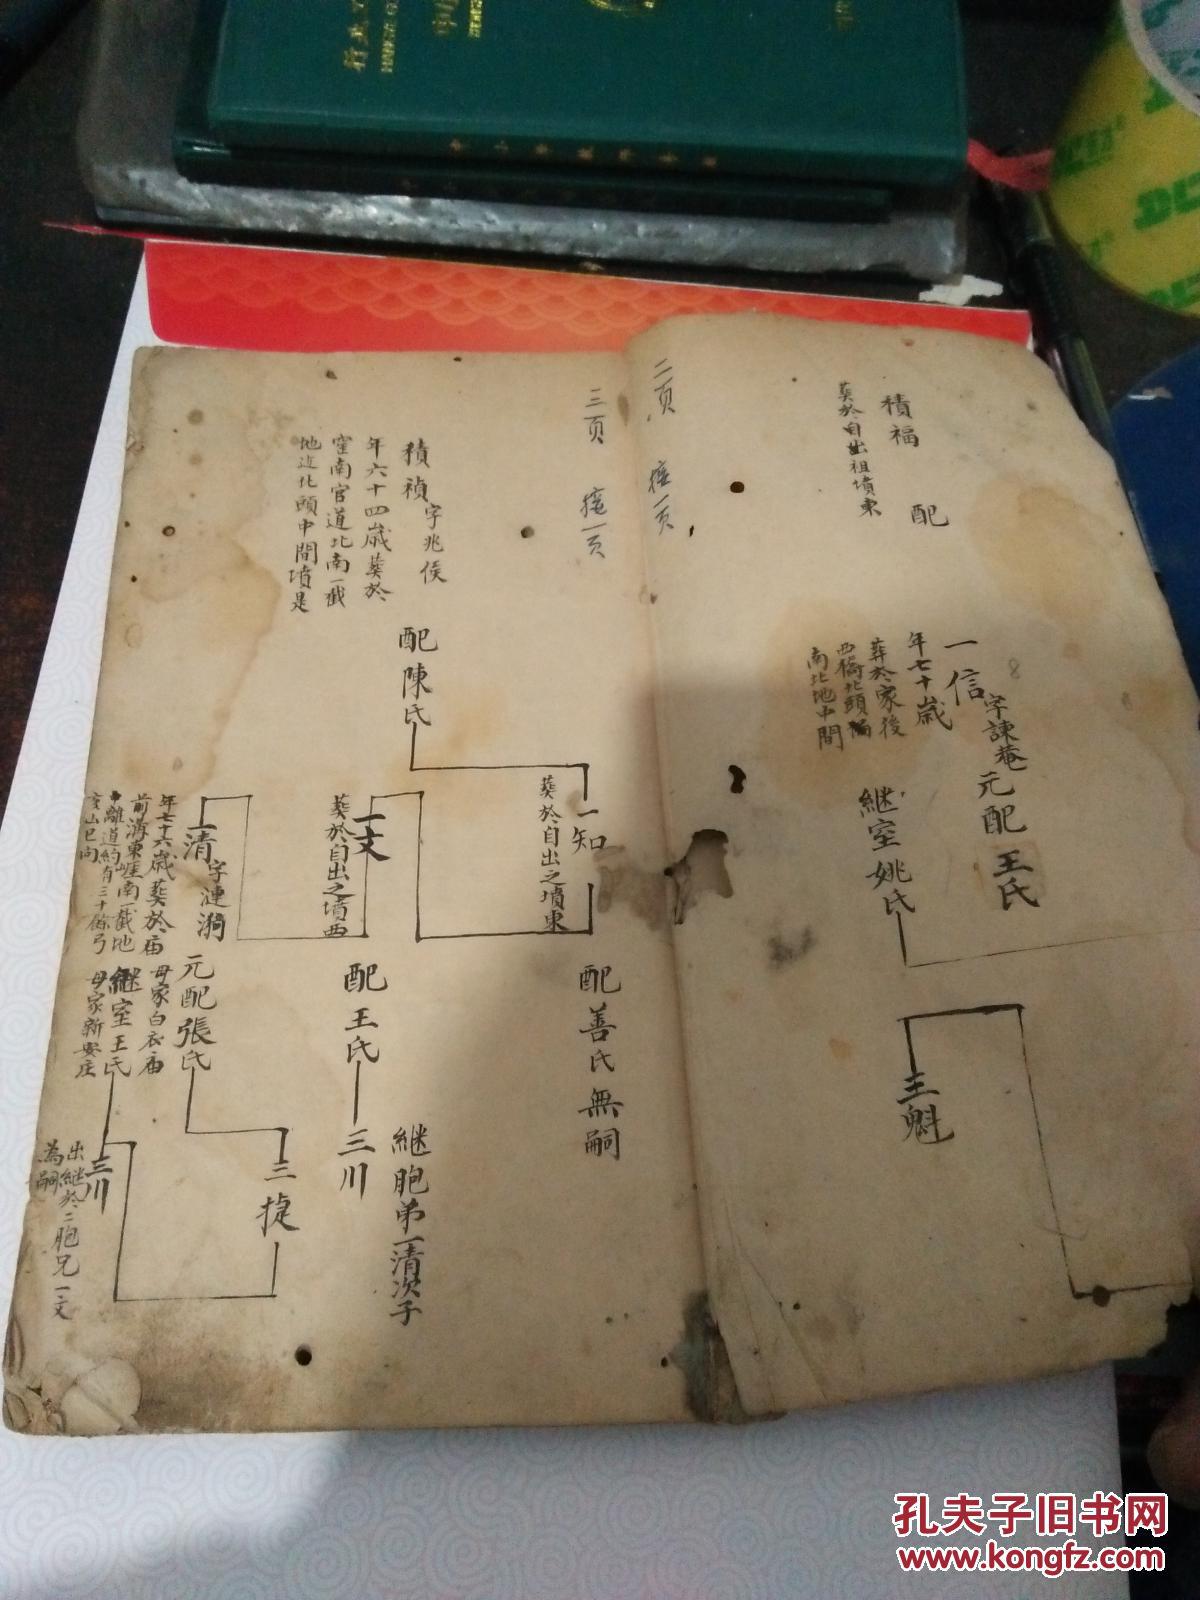 積福
葬於自出祖墳東
配
一信字諫菴
年七十歲
葬於家後
西橋北頭
南北地中間
元配王氏
継室姚氏
王魁
二页 接一页
三页 接一页
積禎字兆侯
年六十四歲葬於
窪南官道北南一截
地近北頭中間墳是
配陳氏
一知
葬於自出之墳東
配善氏無嗣
一文
葬於自出之墳西
配王氏
三川
継胞弟一清次子
一清字漣漪
年七十六歲葬於庙
前溝東崖南一截地
中離道約有三十餘弓
亥山巳向
元配張氏
母家白衣庙
継室王氏
母家新安庄
三捷
三川
出継於二胞兄一文
為嗣
孔夫子旧书网
www.kongfz.com